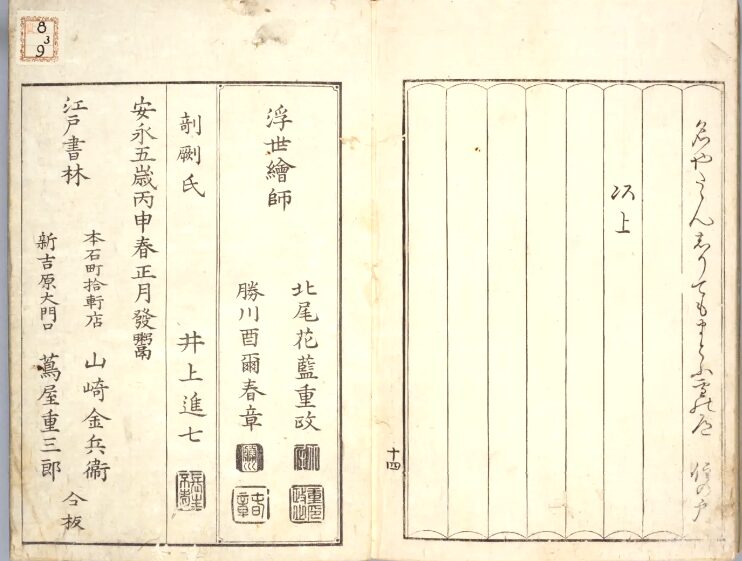 以上
十四
浮世繪師
北尾花藍重政
勝川酉爾春章
剞劂氏
井上進七
安永五歳丙申春正月發鬻
江戸書林
本石町拾軒店 山崎金兵衞
新吉原大門口 蔦屋重三郎
合板
8
3
9